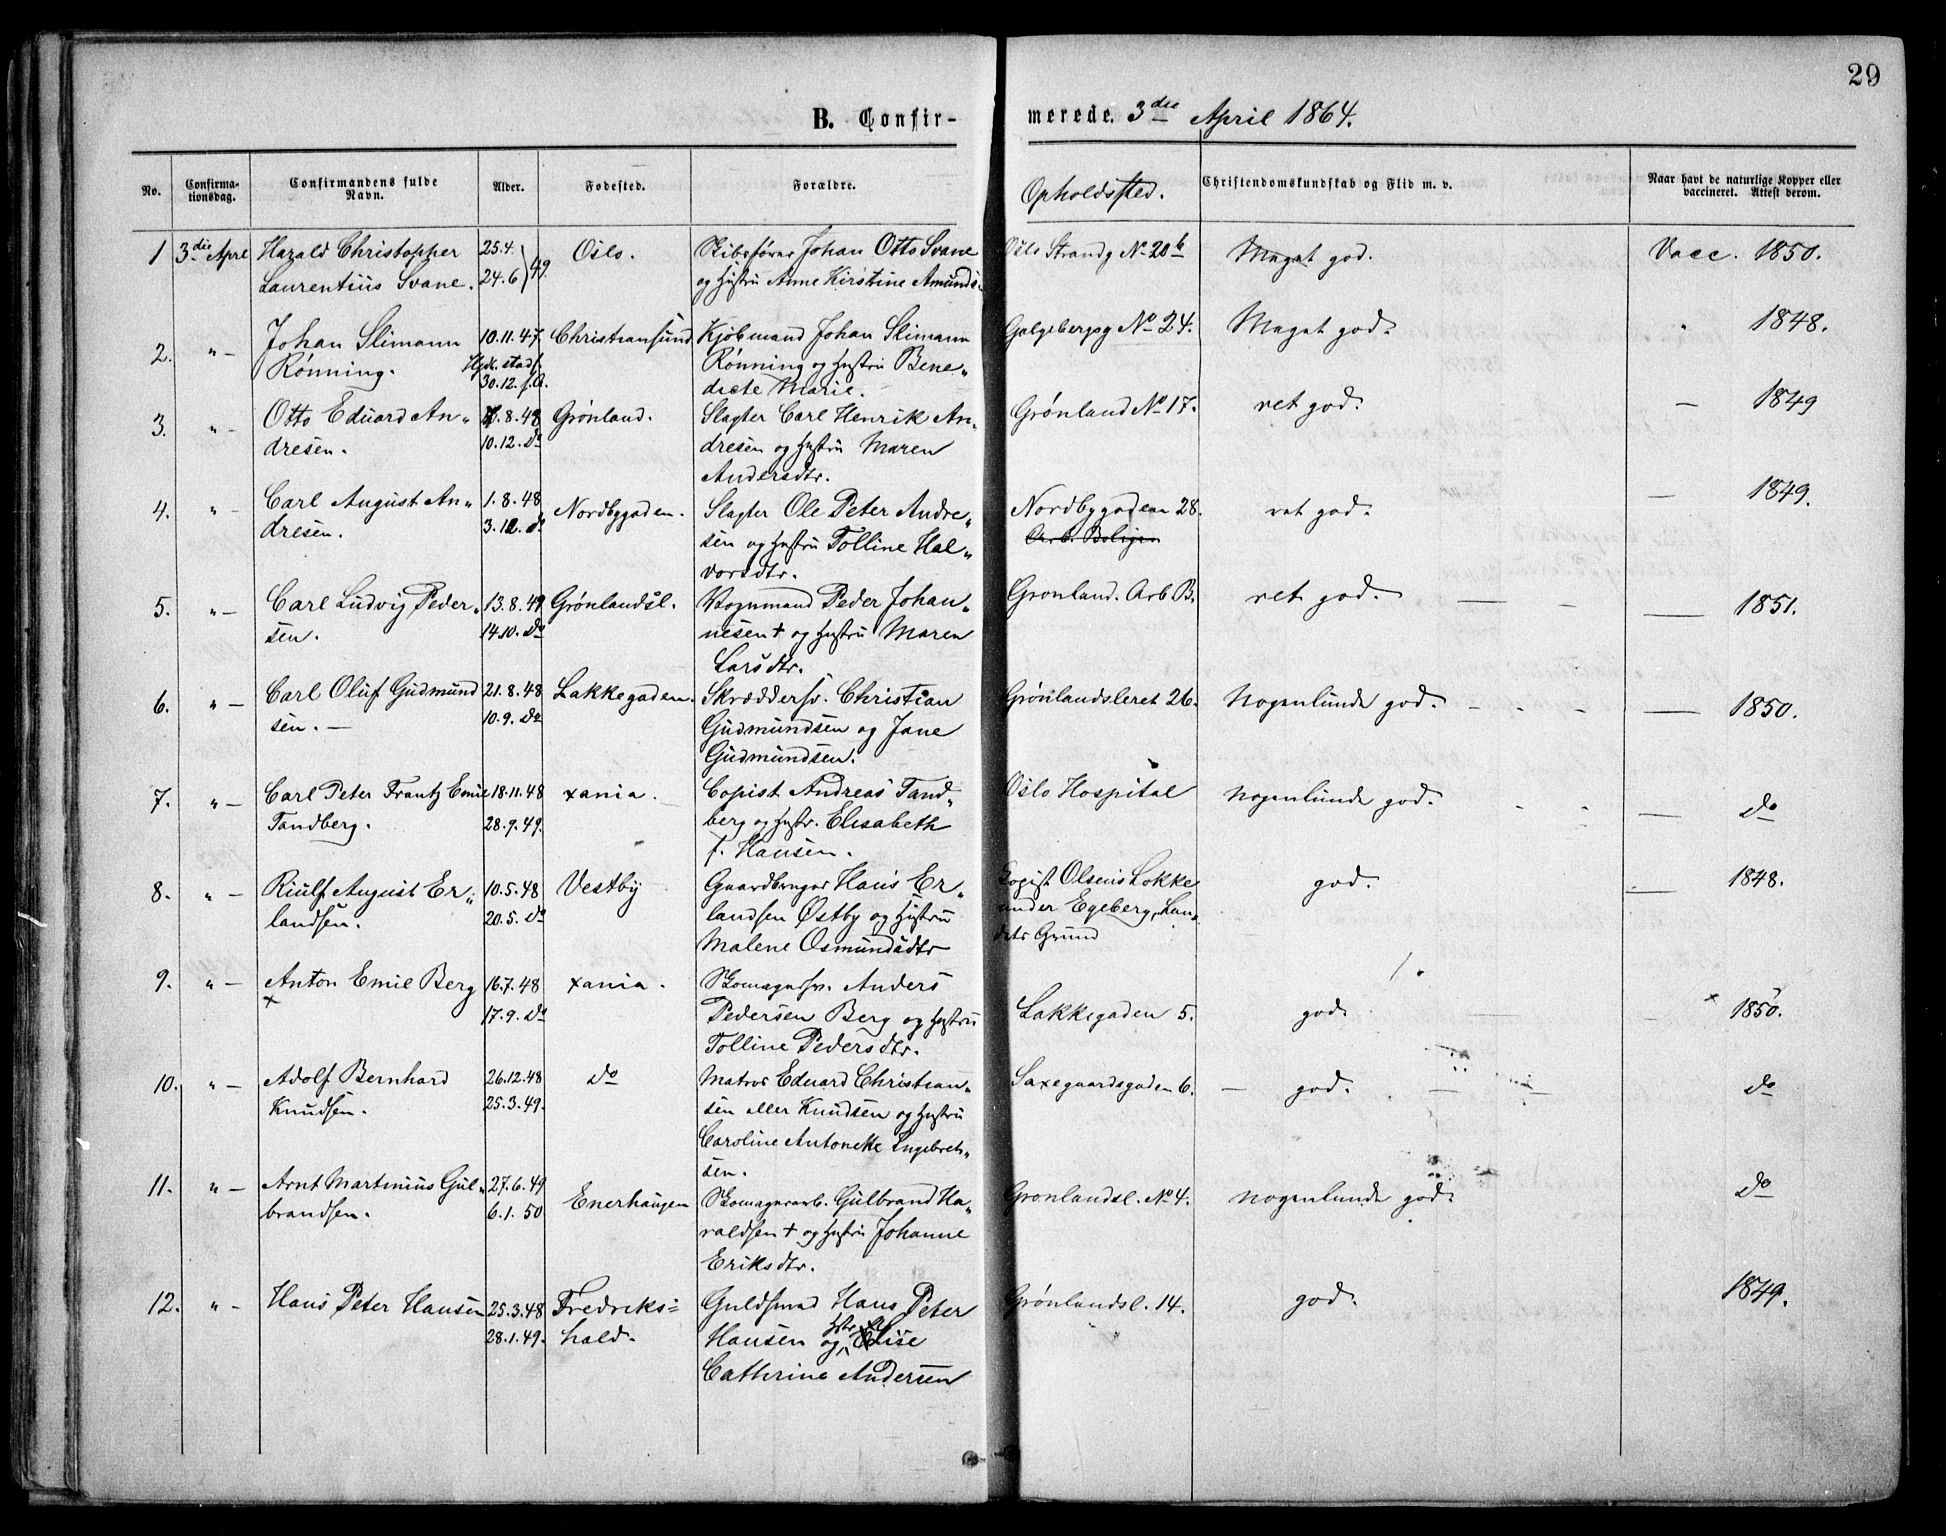 29
B. Confir-
merede. 3die April 1864.
No.
Confirma-
tionsdag.
Confirmandens fulde
Navn.
Alder.
Fødested.
Forældre.
Opholdssted.
Christendomskundskab og Flid m. v.
Naar havt de naturlige Kopper eller
vaccineret. Attest derom.
1 3die Apr Harald Christopher 25.4. Oslo. Skibsfører Johan Otto Svane Oslo Strandg No 20b Meget god. Vacc. 1850.
Laurentius Svane. 24.6 49. og Hustru Anne Kirstine Amunds.
2. " — Johan Slimann 10.11.47. Christiansund Kjøbmand Johan Slimann Galgebergsg No 24. Meget god. " 1848.
Rønning. Hjd. stadf. Rønning og Hustru Bene„
30.12. f.A. dicte Marie.
3. " — Otto Eduard An„ 8.48 Grønland. Slagter Carl Henrik An„ Grønland No 17. ret god. — 1849
dresen. 10.12. do dresen og Hustru Maren
Andersdtr.
4. " — Carl August An„ 1.8.48 Nordbygaden. Slagter Ole Peter Andre„ Nordbygaden 28. ret god. — 1849.
dresen. 3.12. do sen og Hustru Tolline Hal„ Arb. Boligen
vorsdtr.
5. " — Carl Ludvig Peder„ 13.8.49 Grønlandsl. Vognmand Peder Johan„ Gronland. Arb B. ret god. — 1851.
sen. 14.10. do nesen † og Hustru Maren
Larsdtr.
6. " — Carl Oluf Gudmund 21.8.48 Lakkegaden. Skræddersv. Christian Grønlandsleret 26. Nogenlunde god. — 1850.
sen. — 10.9. do Gudmundsen og Jane
Gudmundsen.
7. " — Carl Peter Frantz Emil 18.11.48 xania. Copist Andreas Tand„ Oslo Hospital nogenlunde god. — do
Tandberg. 28.9.49. berg og Hustr. Elisabeth
f. Hansen.
8. " — Riulf August Er„ 10.5.48 Vestby Gaardbruger Hans Er„ Copist Olsens Løkke god. — 1848.
landsen. 20.5. do landsen Østby og Hustru under Egeberg, Lan„
Malene Osmundsdtr dets Grund
9. " — Anton Emil Berg 16.7.48 xania. Skomagersv. Anders
x 17.9. do Pedersen Berg og Hustru Lakkegaden 5. god. x 1850.
Tolline Pedersdtr.
10. " — Adolf Bernhard 26.12.48 do Matros Eduard Christian„ Saxegaardsgaden 6. — god. — do
Knudsen. 25.3.49. sen eller Knudsen og Hustru
Caroline Antonette Engebret„
sen.
11. " — Arnt Martinius Gul„ 27.6.49 Enerhaugen Skomagerarb. Gulbrand Ha„ Gronlandsl. No 4. nogenlunde god. do
brandsen. 6.1.50 raldsen † og Hustru Johanne
Eriksdtr.
12. " — Hans Peter Hansen 25.3.48 Fredriks= Guldsmed Hans Peter Grønlandsl. 14. god. 1849.
28.1.49. hald. Hansen og Hstr. Elise
Cathrine Andersen